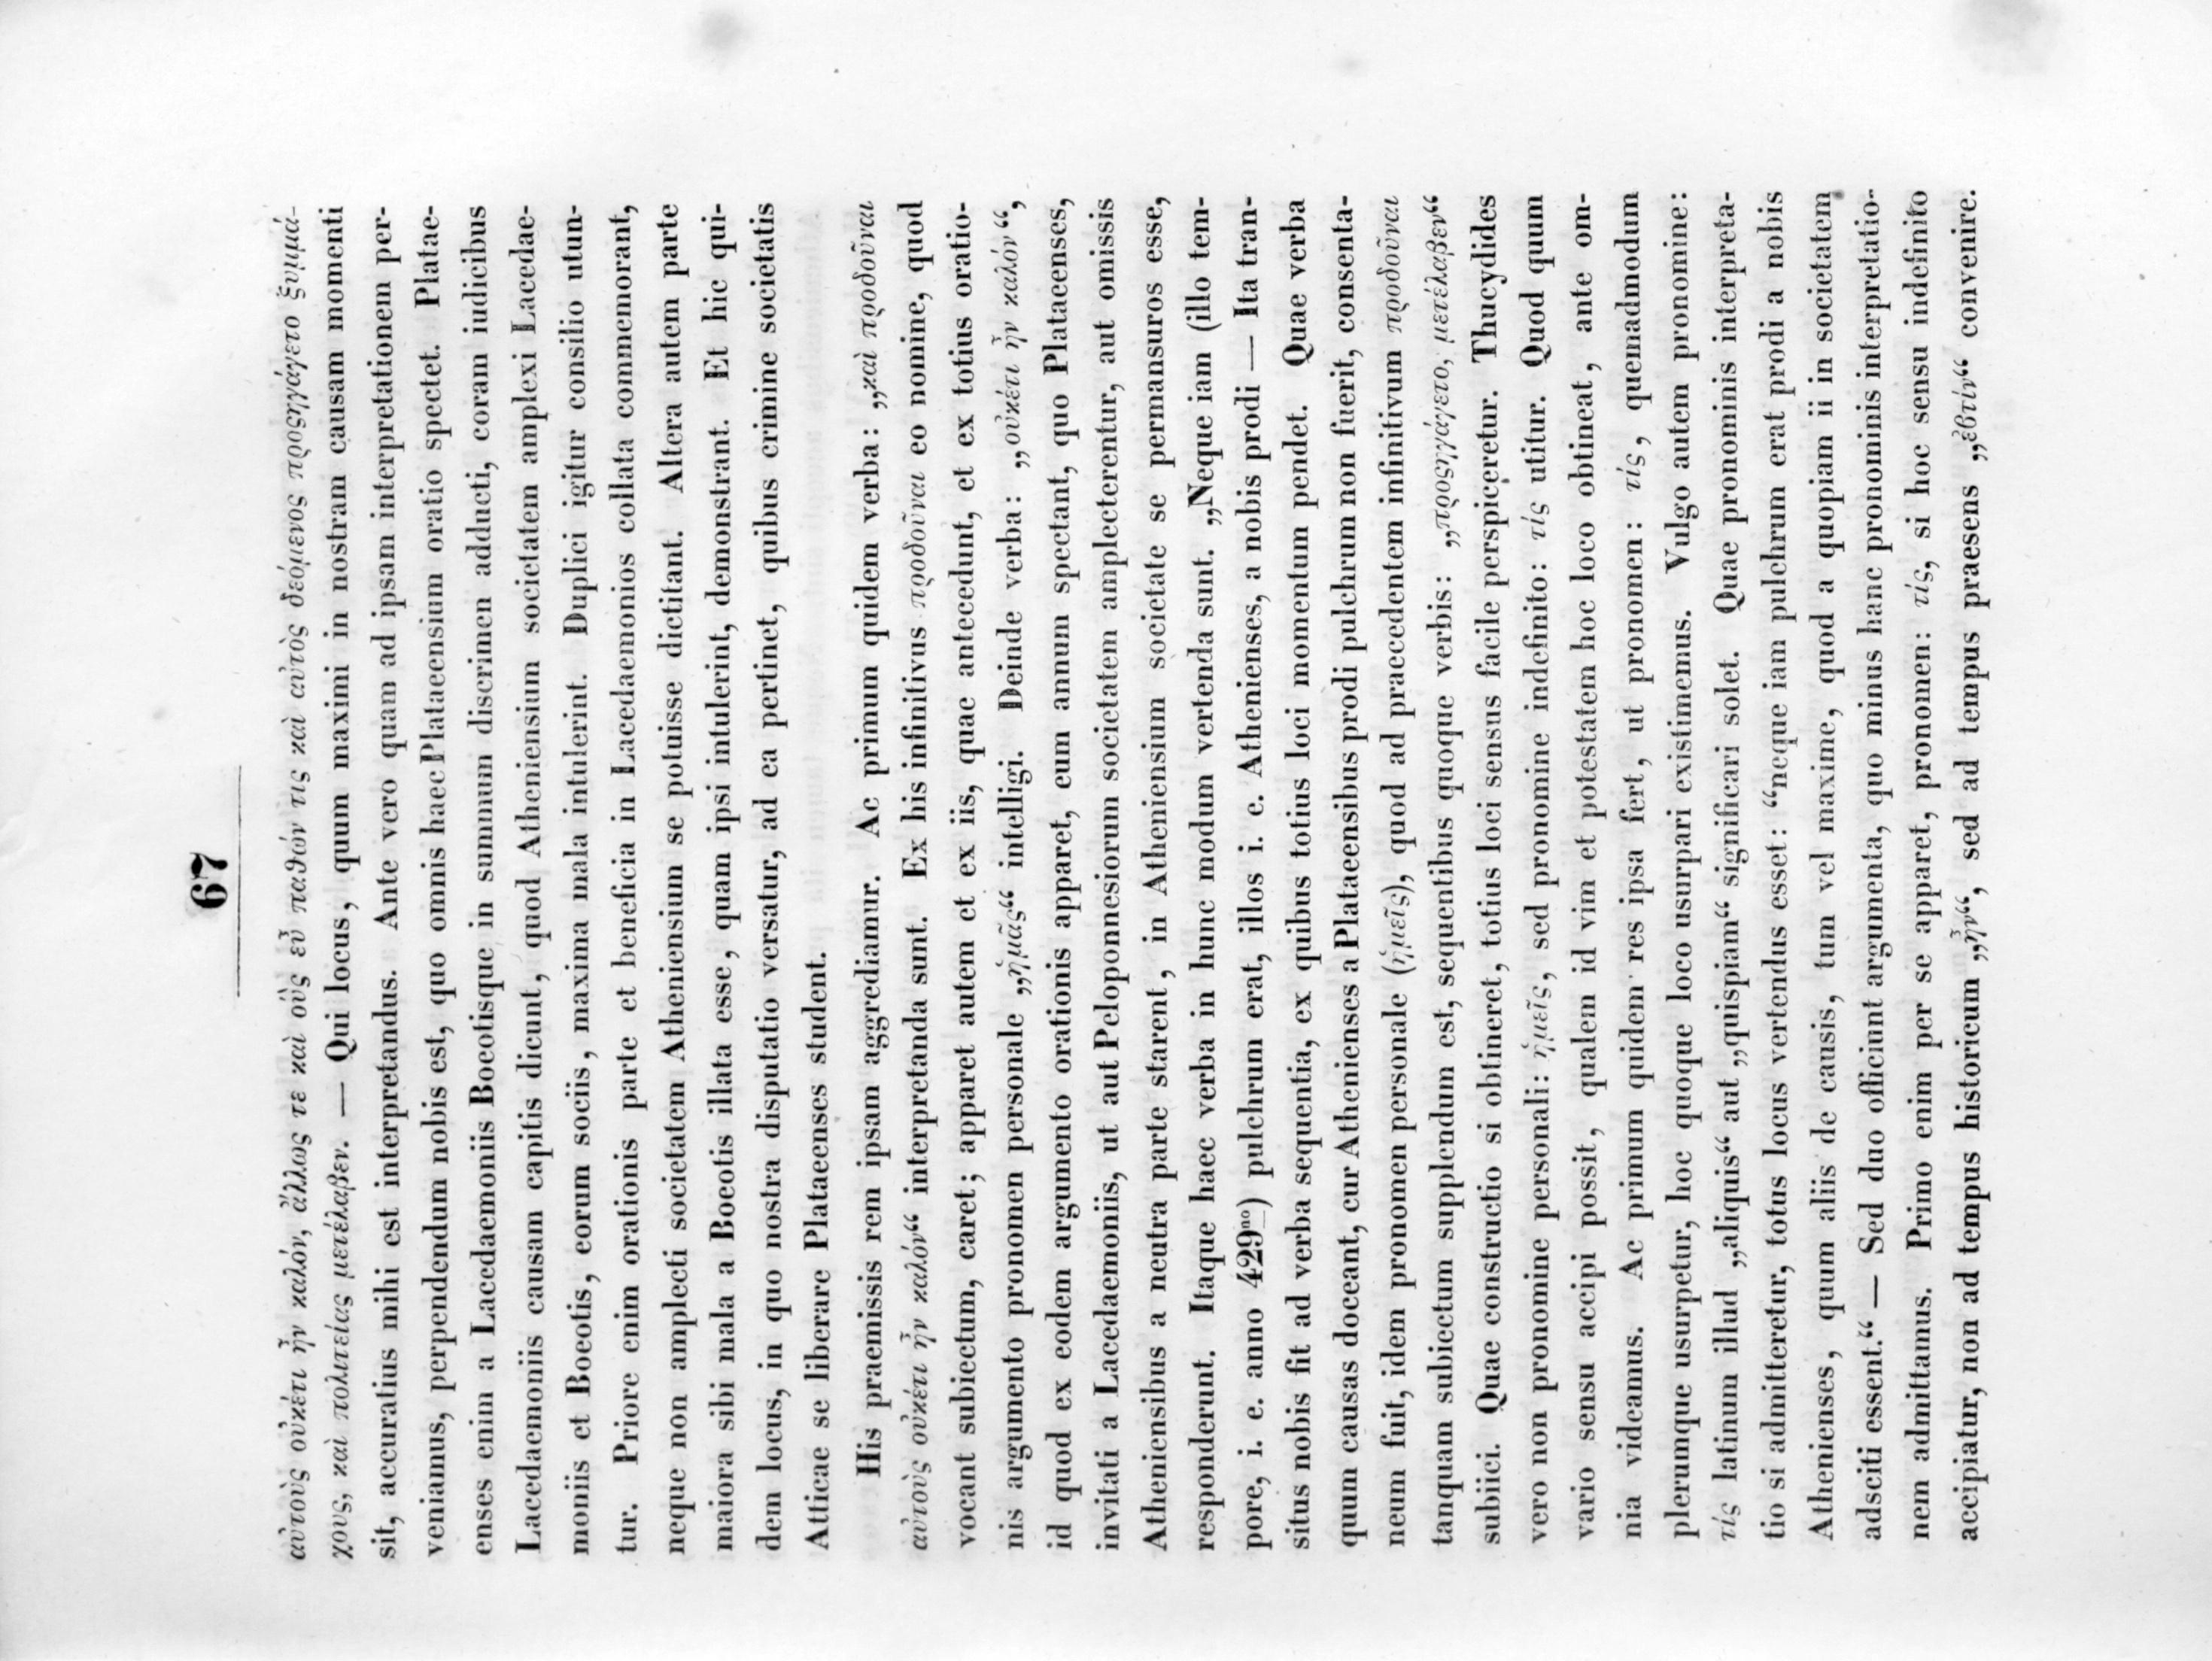 67
αὐτοὺς οὐκέτι ἦν καλόν, ἄλλως τε καὶ οὓς εὖ παθών τις καὶ αὐτὸς δεόμενος προςηγάγετο ξυμμά-
χους, καὶ πολιτείας μετέλαβεν. — Qui locus, quum maximi in nostram causam momenti
sit, accuratius mihi est interpretandus. Ante vero quam ad ipsam interpretationem per-
veniamus, perpendendum nobis est, quo omnis haec Plataeensium oratio spectet. Platae-
enses enim a Lacedaemoniis Boeotisque in summum discrimen adducti, coram iudicibus
Lacedaemoniis causam capitis dicunt, quod Atheniensium societatem amplexi Lacedae-
moniis et Boeotis, eorum sociis, maxima mala intulerint. Duplici igitur consilio utun-
tur. Priore enim orationis parte et beneficia in Lacedaemonios collata commemorant,
neque non amplecti societatem Atheniensium se potuisse dictitant. Altera autem parte
maiora sibi mala a Boeotis illata esse, quam ipsi intulerint, demonstrant. Et hic qui-
dem locus, in quo nostra disputatio versatur, ad ea pertinet, quibus crimine societatis
Atticae se liberare Plataeenses student.
His praemissis rem ipsam aggrediamur. Ac primum quidem verba: „καὶ προδοῦναι
αὐτοὺς οὐκέτι ἦν καλόν“ interpretanda sunt. Ex his infinitivus προδοῦναι eo nomine, quod
vocant subiectum, caret; apparet autem et ex iis, quae antecedunt, et ex totius oratio-
nis argumento pronomen personale „ἡμᾶς“ intelligi. Deinde verba: „οὐκέτι ἦν καλόν“,
id quod ex eodem argumento orationis apparet, eum annum spectant, quo Plataeenses,
invitati a Lacedaemoniis, ut aut Peloponnesiorum societatem amplecterentur, aut omissis
Atheniensibus a neutra parte starent, in Atheniensium societate se permansuros esse,
responderunt. Itaque haec verba in hunc modum vertenda sunt. „Neque iam (illo tem-
pore, i. e. anno 429no) pulchrum erat, illos i. e. Athenienses, a nobis prodi — Ita tran-
situs nobis fit ad verba sequentia, ex quibus totius loci momentum pendet. Quae verba
quum causas doceant, cur Athenienses a Plataeensibus prodi pulchrum non fuerit, consenta-
neum fuit, idem pronomen personale (ἡμεῖς), quod ad praecedentem infinitivum προδοῦναι
tanquam subiectum supplendum est, sequentibus quoque verbis: „προςηγάγετο, μετέλαβεν“
subiici. Quae constructio si obtineret, totius loci sensus facile perspiceretur. Thucydides
vero non pronomine personali: ἡμεῖς, sed pronomine indefinito: τίς utitur. Quod quum
vario sensu accipi possit, qualem id vim et potestatem hoc loco obtineat, ante om-
nia videamus. Ac primum quidem res ipsa fert, ut pronomen: τίς, quemadmodum
plerumque usurpetur, hoc quoque loco usurpari existimemus. Vulgo autem pronomine:
τίς latinum illud „aliquis“ aut „quispiam“ significari solet. Quae pronominis interpreta-
tio si admitteretur, totus locus vertendus esset: “neque iam pulchrum erat prodi a nobis
Athenienses, quum aliis de causis, tum vel maxime, quod a quopiam ii in societatem
adsciti essent.“ — Sed duo officiunt argumenta, quo minus hanc pronominis interpretatio-
nem admittamus. Primo enim per se apparet, pronomen: τίς, si hoc sensu indefinito
accipiatur, non ad tempus historicum „ἦν“, sed ad tempus praesens „ἐϐτίν“ convenire.